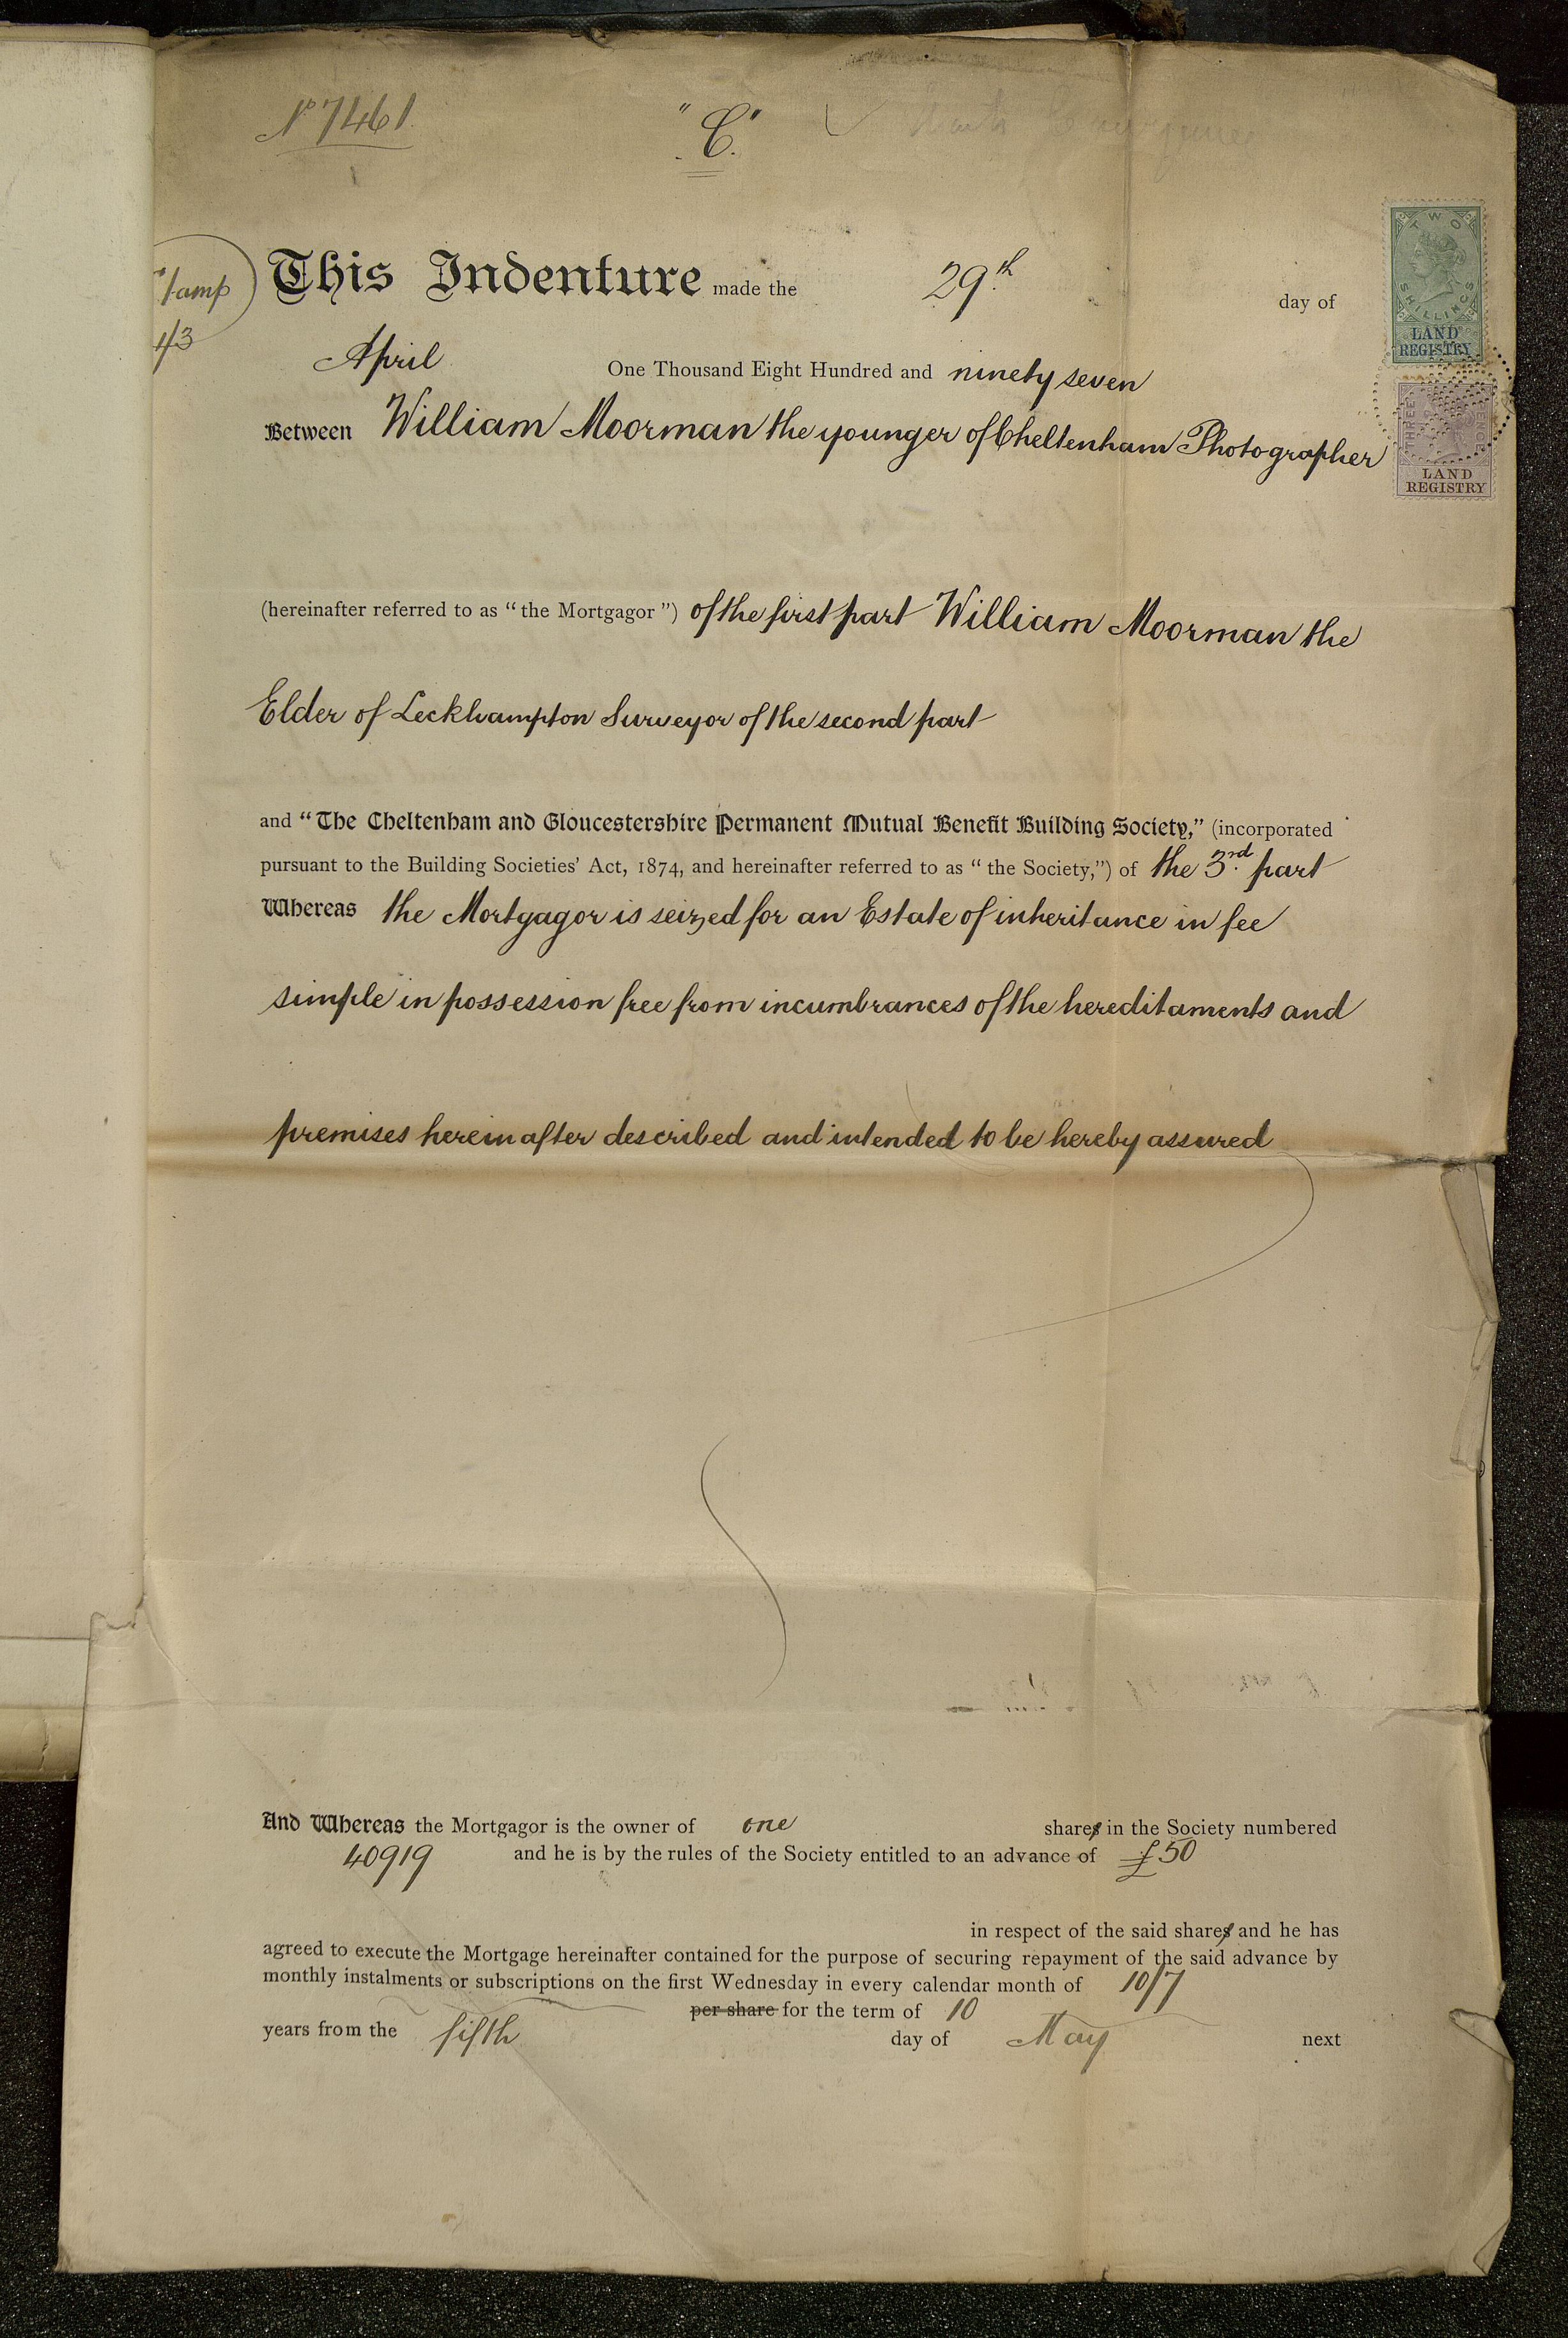 No 7461.
"C."
TWO
SHILLINGS
LAND
REGISTRY
THREE
PENCE
LAND
REGISTRY
Stamp
This Indenture made the 29th. day of
April One Thousand Eight Hundred and ninety seven
Between William Moorman the younger of Cheltenham Photographer
(hereinafter referred to as “the Mortgagor”) of the first part William Moorman the
Elder of Leckhampton Surveyor of the second part
and “The Cheltenham and Gloucestershire Permanent Mutual Benefit Building Society,” (incorporated
pursuant to the Building Societies’ Act, 1874, and hereinafter referred to as “the Society,”) of the 3rd. part
Whereas the Mortgagor is seized for an Estate of inheritance in fee
simple in possession free from incumbrances of the hereditaments and
premises hereinafter described and intended to be hereby assured
And Whereas the Mortgagor is the owner of one shares in the Society numbered
40919 and he is by the rules of the Society entitled to an advance of £50
in respect of the said shares and he has
agreed to execute the Mortgage hereinafter contained for the purpose of securing repayment of the said advance by
monthly instalments or subscriptions on the first Wednesday in every calendar month of 10/7
per share for the term of 10
years from the fifth day of May next